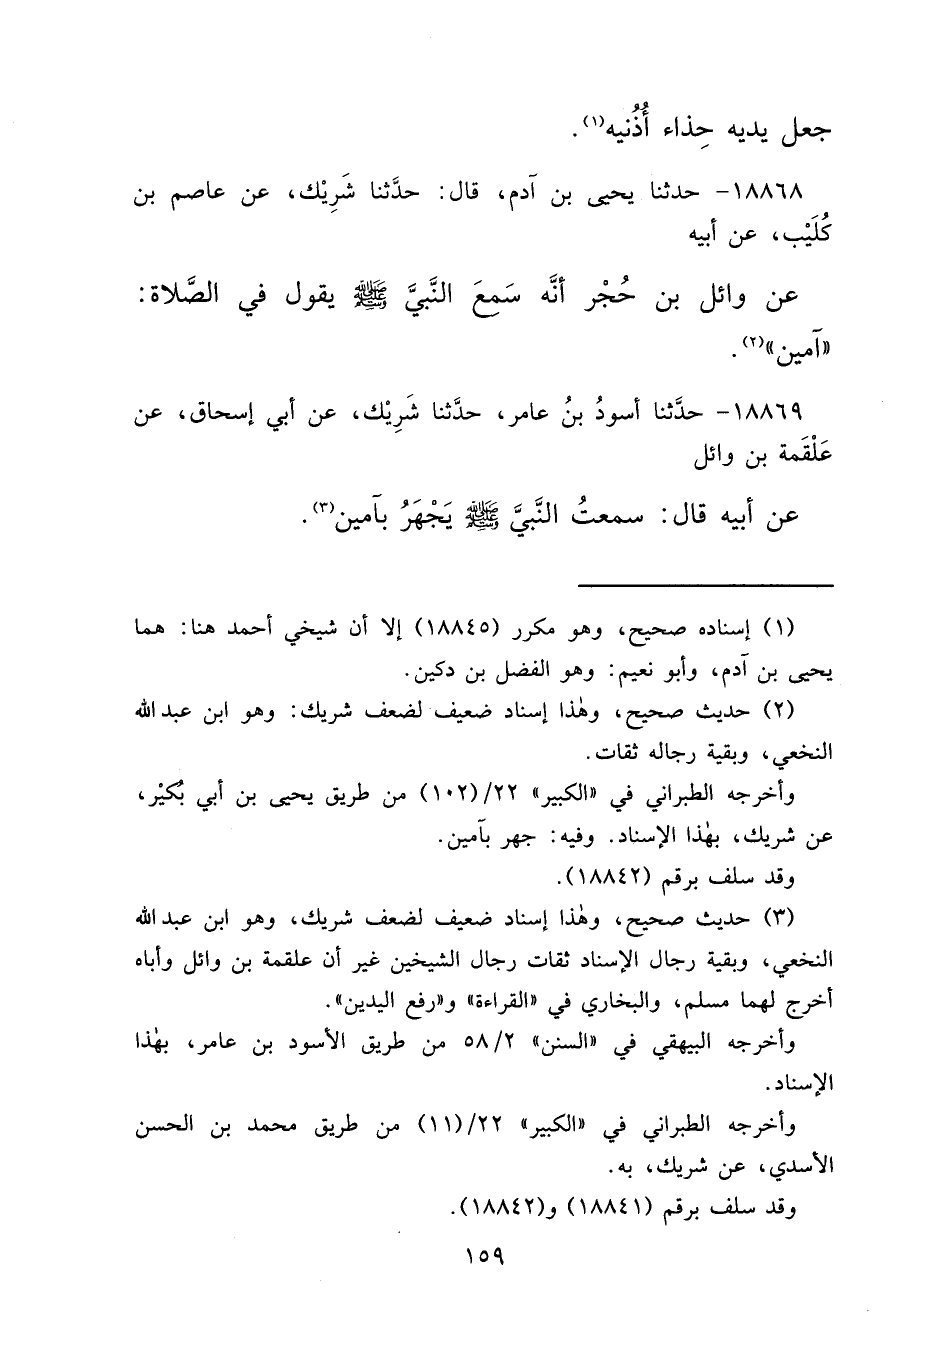 جعل يديه حِذاء أُذُنيه(١).
١٨٨٦٨- حدثنا يحيى بن آدم، قال: حدَّثنا شَرِيْك، عن عاصم بن
كُلَيْب، عن أبيه
عن وائل بن حُجْر أنَّه سَمِعَ النَّبيَّ ﷺ يقول في الصَّلاة:
«آمين»(٢).
١٨٨٦٩- حدَّثنا أسودُ بنُ عامر، حدَّثنا شَرِيْك، عن أبي إسحاق، عن
عَلْقَمة بن وائل
عن أبيه قال: سمعتُ النَّبيَّ ﷺ يَجْهَرُ بآمين(٣).
(١) إسناده صحيح، وهو مكرر (١٨٨٤٥) إلا أن شيخي أحمد هنا: هما
يحيى بن آدم، وأبو نعيم: وهو الفضل بن دكين.
(٢) حديث صحيح، وهٰذا إسناد ضعيف لضعف شريك: وهو ابن عبد الله
النخعي، وبقية رجاله ثقات.
وأخرجه الطبراني في «الكبير» ٢٢/(١٠٢) من طريق يحيى بن أبي بُكيْر،
عن شريك، بهٰذا الإسناد. وفيه: جهر بآمين.
وقد سلف برقم (١٨٨٤٢).
(٣) حديث صحيح، وهٰذا إسناد ضعيف لضعف شريك، وهو ابن عبد الله
النخعي، وبقية رجال الإسناد ثقات رجال الشيخين غير أن علقمة بن وائل وأباه
أخرج لهما مسلم، والبخاري في «القراءة» و«رفع اليدين».
وأخرجه البيهقي في «السنن» ٥٨/٢ من طريق الأسود بن عامر، بهٰذا
الإسناد.
وأخرجه الطبراني في «الكبير» ٢٢/(١١) من طريق محمد بن الحسن
الأسدي، عن شريك، به.
وقد سلف برقم (١٨٨٤١) و(١٨٨٤٢).
١٥٩